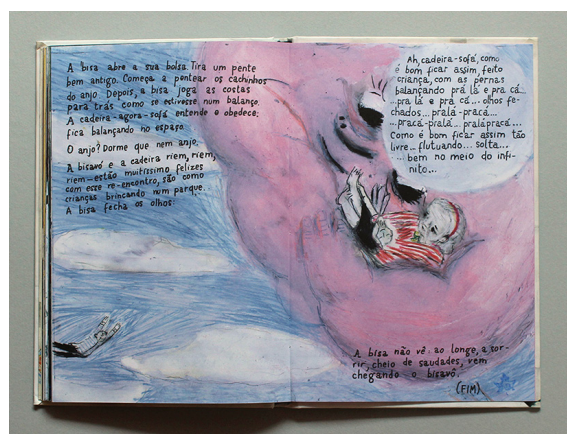 A bisa abre a sua bolsa. Tira um pente
bem antigo. Começa a pentear os cachinhos
do anjo. Depois, a bisa joga as costas
para trás como se estivesse num balanço.
A cadeira-agora-sofá entende e obedece:
fica balançando no espaço.
O anjo? Dorme que nem anjo.
A bisavó e a cadeira riem, riem,
riem-estão muitíssimo felizes
com esse re-encontro, são como
crianças brincando num parque.
A bisa fecha os olhos:
Ah, cadeira-sofá, como
é bom ficar assim, feito
criança, com as pernas
balançando prá lá e pra cá...
...pra lá e prá cá... olhos fe-
chados...pralá-pracá...
...pracá-pralá...pralápracá...
Como é bom ficar assim tão
livre...flutuando...solta...
...bem no meio do infi-
nito...
A bisa não vê: ao longe, a sor-
rir, cheio de saudades, vem
chegando o bisavô.
(FIM)